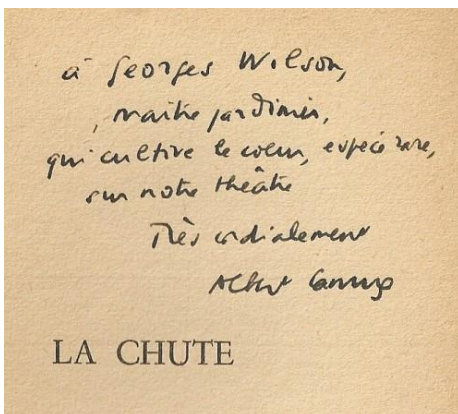 à Georges Wilson,
maître jardinier,
qui cultive le coeur, espèce rare,
sur notre théâtre
Très cordialement
Albert Camus
LA CHUTE